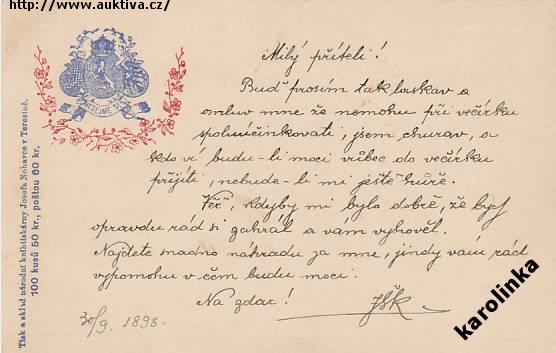 http://www.auktiva.cz/
Tisk a sklad národní knihtiskárny Josefa Nohavce v Terezíně.
100 kusů 50 kr., poštou 60 kr.
Milý příteli!
Buď prosím tak laskav a
omluv mne že nemohu při večírku
spoluúčinkovati, jsem churav, a
kdo ví budu-li moci vůbec do večírku
přijíti, nebude-li mi ještě hůře.
Věř, kdyby mi bylo dobře, že bych
opravdu rád si zahrál a vám vyhověl.
Najdete snadno náhradu za mne, jindy vám rád
vypomohu v čem budu moci.
Na zdar!
30/9. 1898.
karolinka